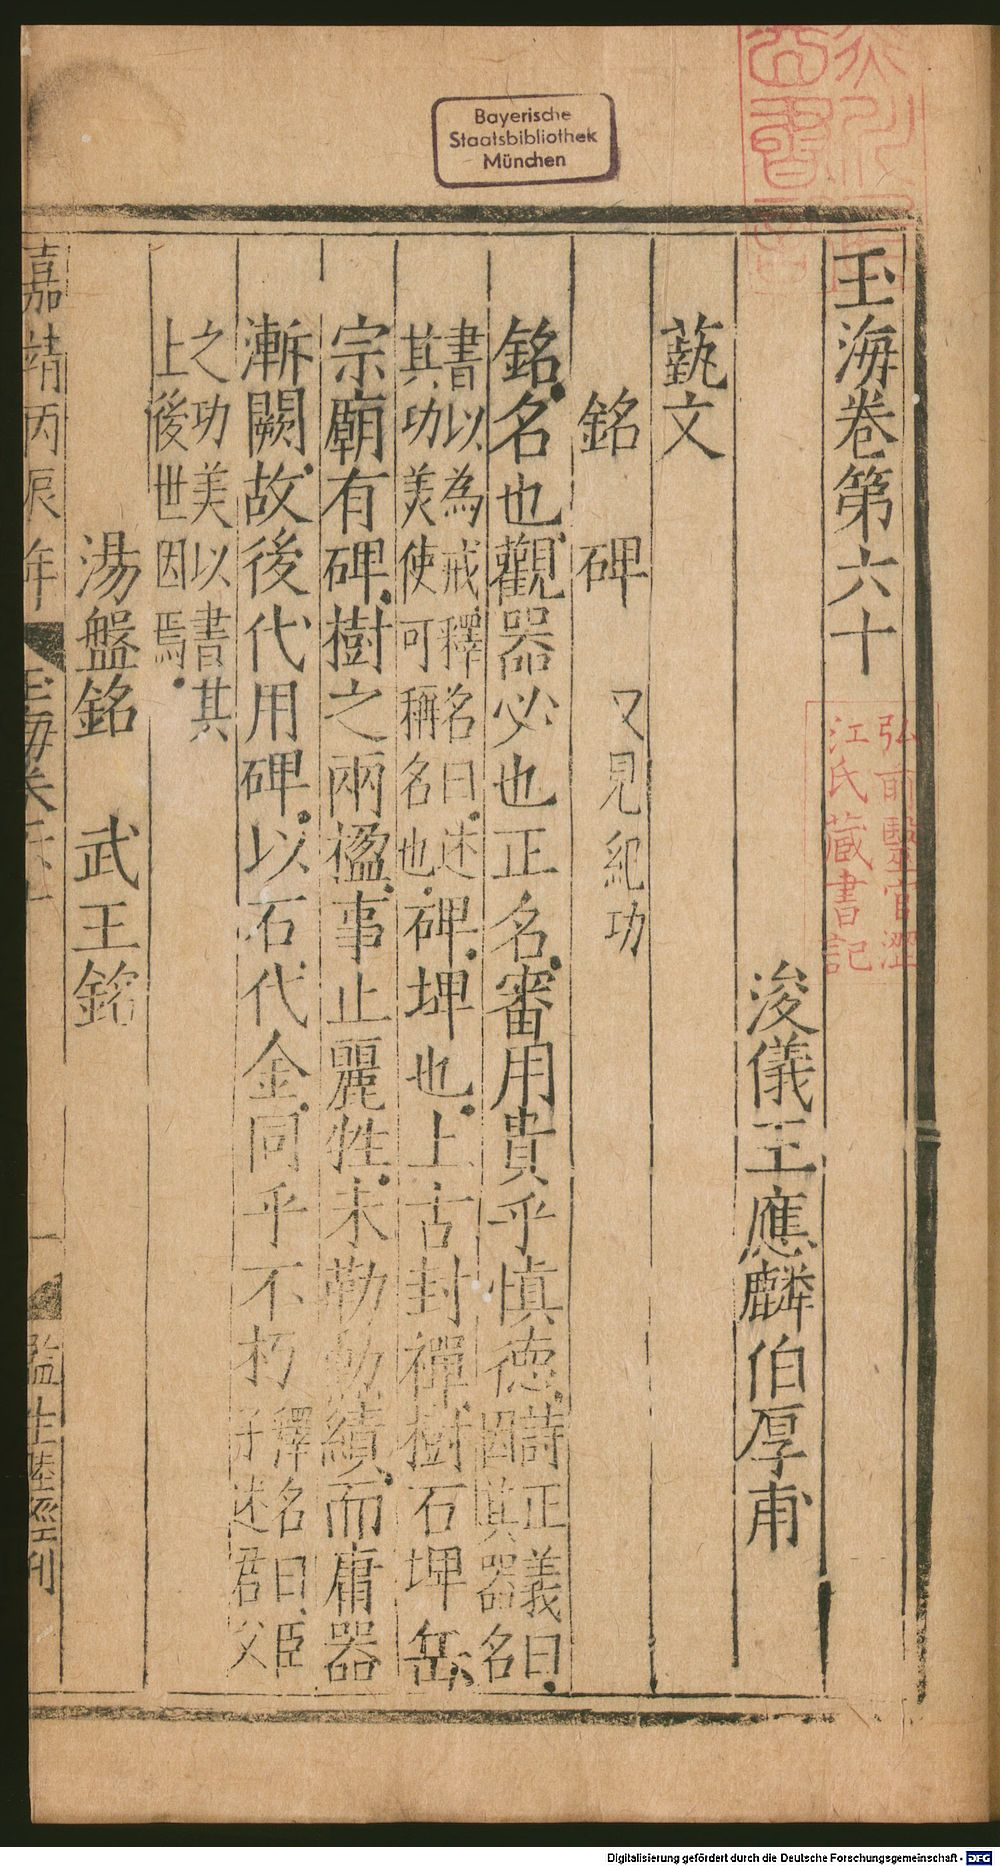 Bayerische
Staatsbibliothek
München
玉海卷第六十
弘前醫官澀
江氏藏書記
浚儀王應麟伯厚甫
藝文
銘 碑 又見紀功
銘名也觀器必也正名審用貴乎慎德詩正義曰因其器名
書以為戒釋名曰述其功美使可稱名也碑埤也上古封禪樹石埤岳
宗廟有碑樹之兩楹事止麗牲未勒勛績而庸器
漸闕故後代用碑以石代金同乎不朽釋名曰臣子述君父
之功美以書其上後世因焉
湯盤銘 武王銘
嘉靖丙辰年 玉海卷六十 一 監生陸經刊
Digitalisierung gefördert durch die Deutsche Forschungsgemeinschaft - DFG